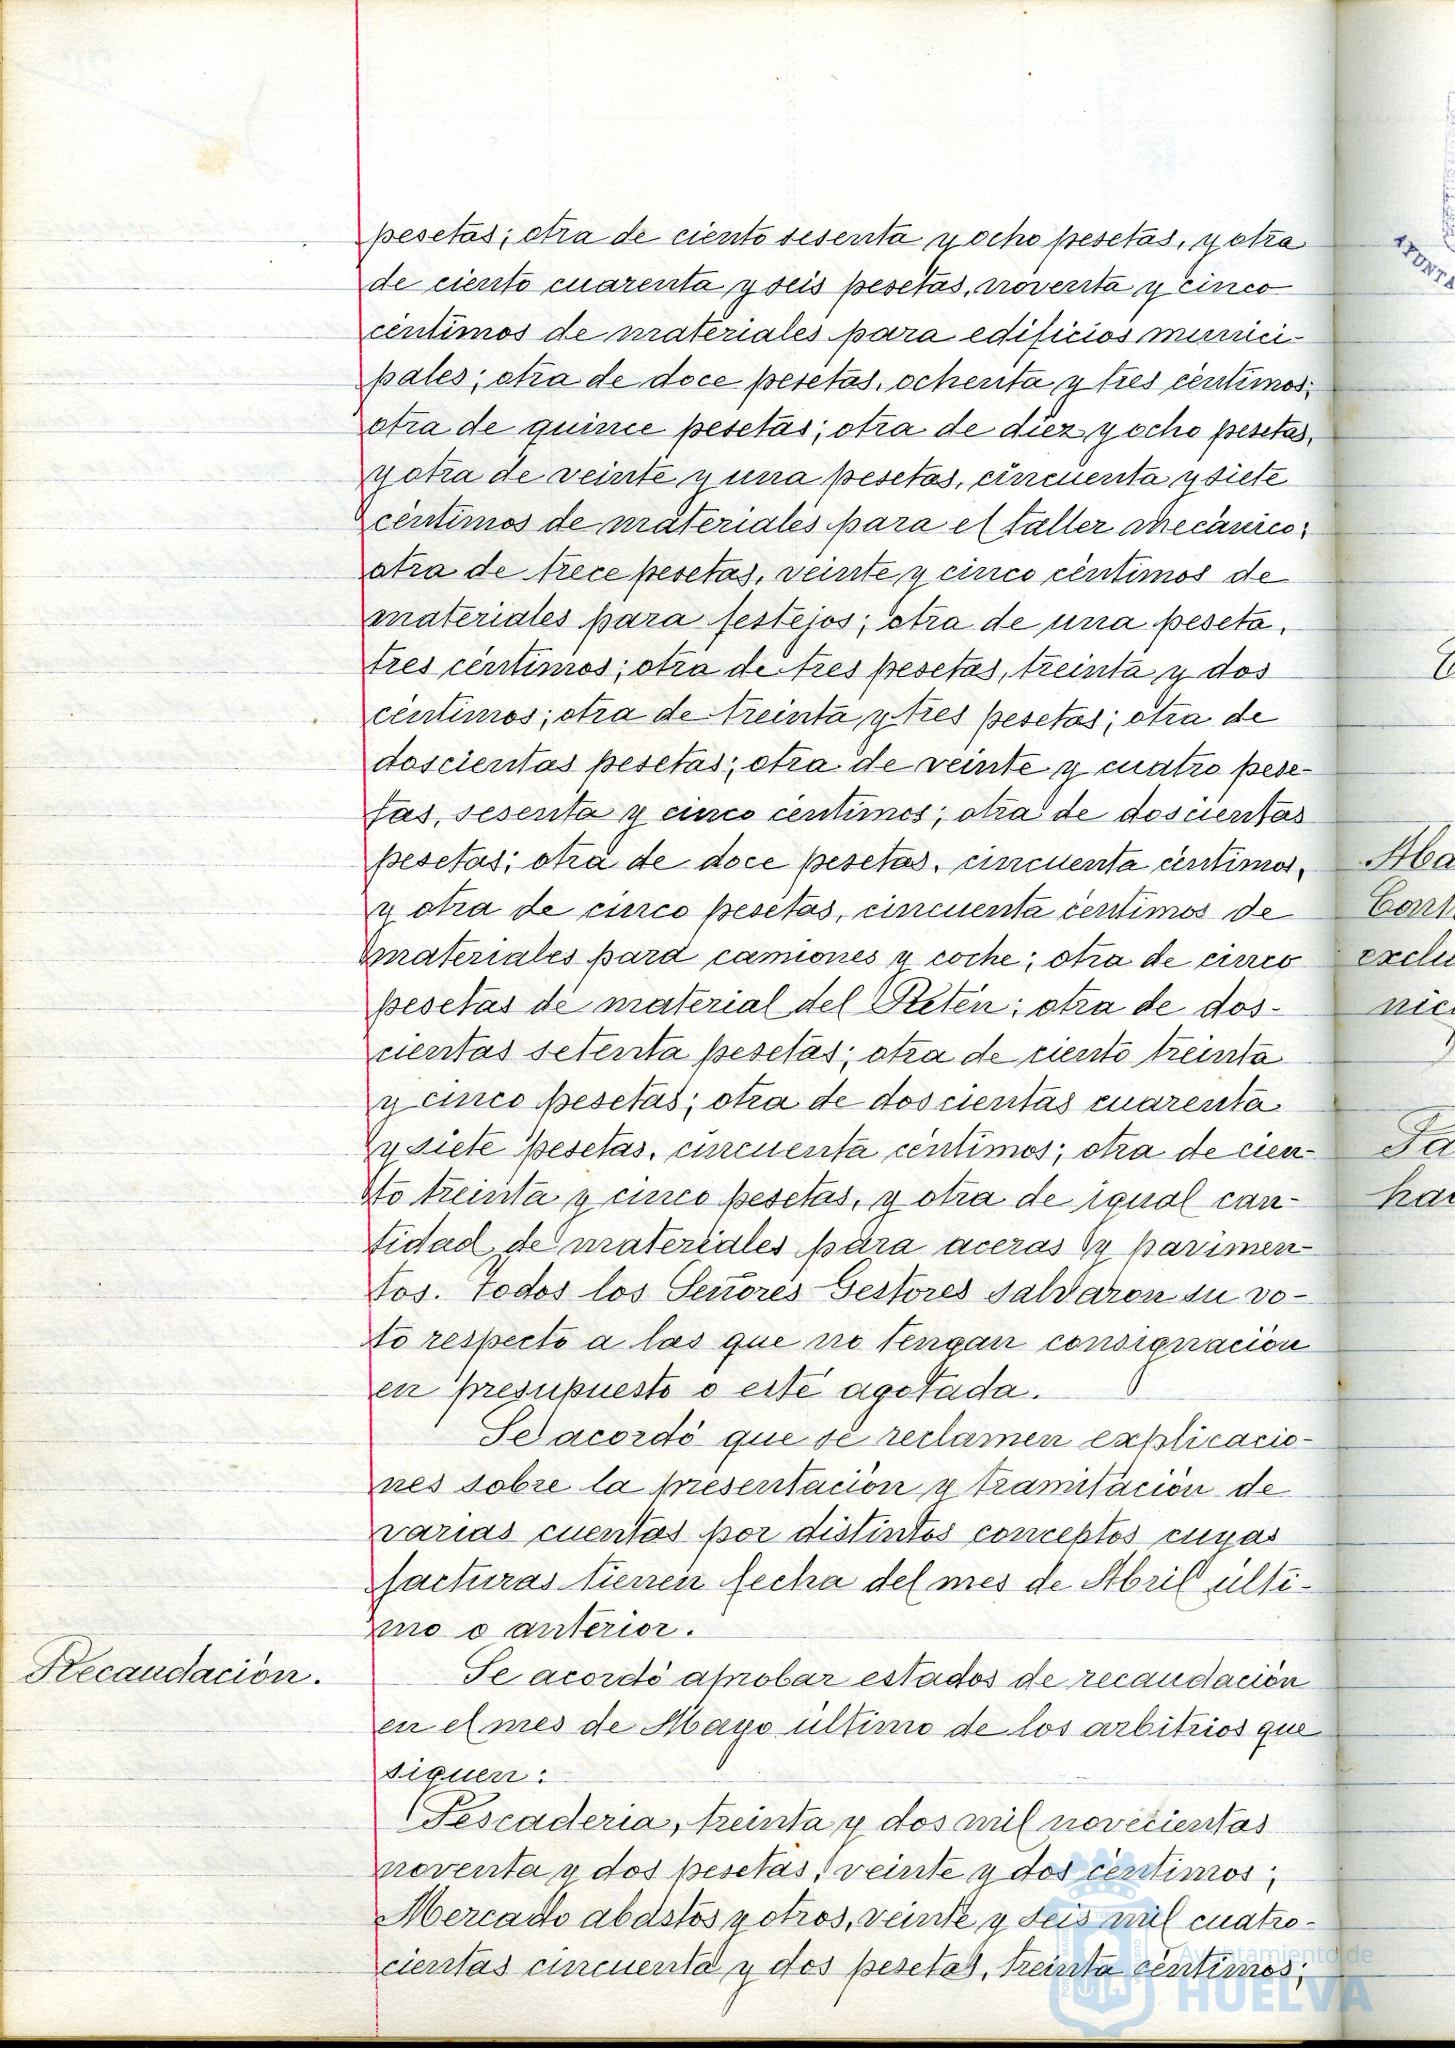 pesetas; otra de ciento sesenta y ocho pesetas, y otra
de ciento cuarenta y seis pesetas, noventa y cinco
céntimos de materiales para edificios munici-
pales; otra de doce pesetas, ochenta y tres céntimos;
otra de quince pesetas; otra de diez y ocho pesetas,
y otra de veinte y una pesetas, cincuenta y siete
céntimos de materiales para el taller mecánico;
otra de trece pesetas, veinte y cinco céntimos de
materiales para festejos; otra de una peseta,
tres céntimos; otra de tres pesetas, treinta y dos
céntimos; otra de treinta y tres pesetas; otra de
doscientas pesetas; otra de veinte y cuatro pese-
tas, sesenta y cinco centimos; otra de doscientas
pesetas; otra de doce pesetas, cincuenta céntimos,
y otra de cinco pesetas, cincuenta centimos de
materiales para camiones y coche; otra de cinco
pesetas de material del Retén; otra de dos-
cientas setenta pesetas; otra de ciento treinta
y cinco pesetas; otra de doscientas cuarenta
y siete pesetas, cincuenta céntimos; otra de cien-
to treinta y cinco pesetas, y otra de igual can-
tidad de materiales para aceras y pavimen-
tos. Todos los Señores Gestores salvaron su vo-
to respecto a las que no tengan consignación
en presupuesto o esté agotada.
Se acordó que se reclamen explicacio-
nes sobre la presentación y tramitación de
varias cuentas por distintos conceptos cuyas
facturas tienen fecha del mes de Abril últi-
mo o anterior.
Recaudación.
Se acordó aprobar estados de recaudación
en el mes de Mayo último de los arbitrios que
siguen:
Pescaderia, treinta y dos mil novecientas
noventa y dos pesetas, veinte y dos céntimos;
Mercado abastos y otros, veinte y seis mil cuatro-
cientas cincuenta y dos pesetas, treinta céntimos;
Ayuntamiento de
HUELVA
AYUNTA